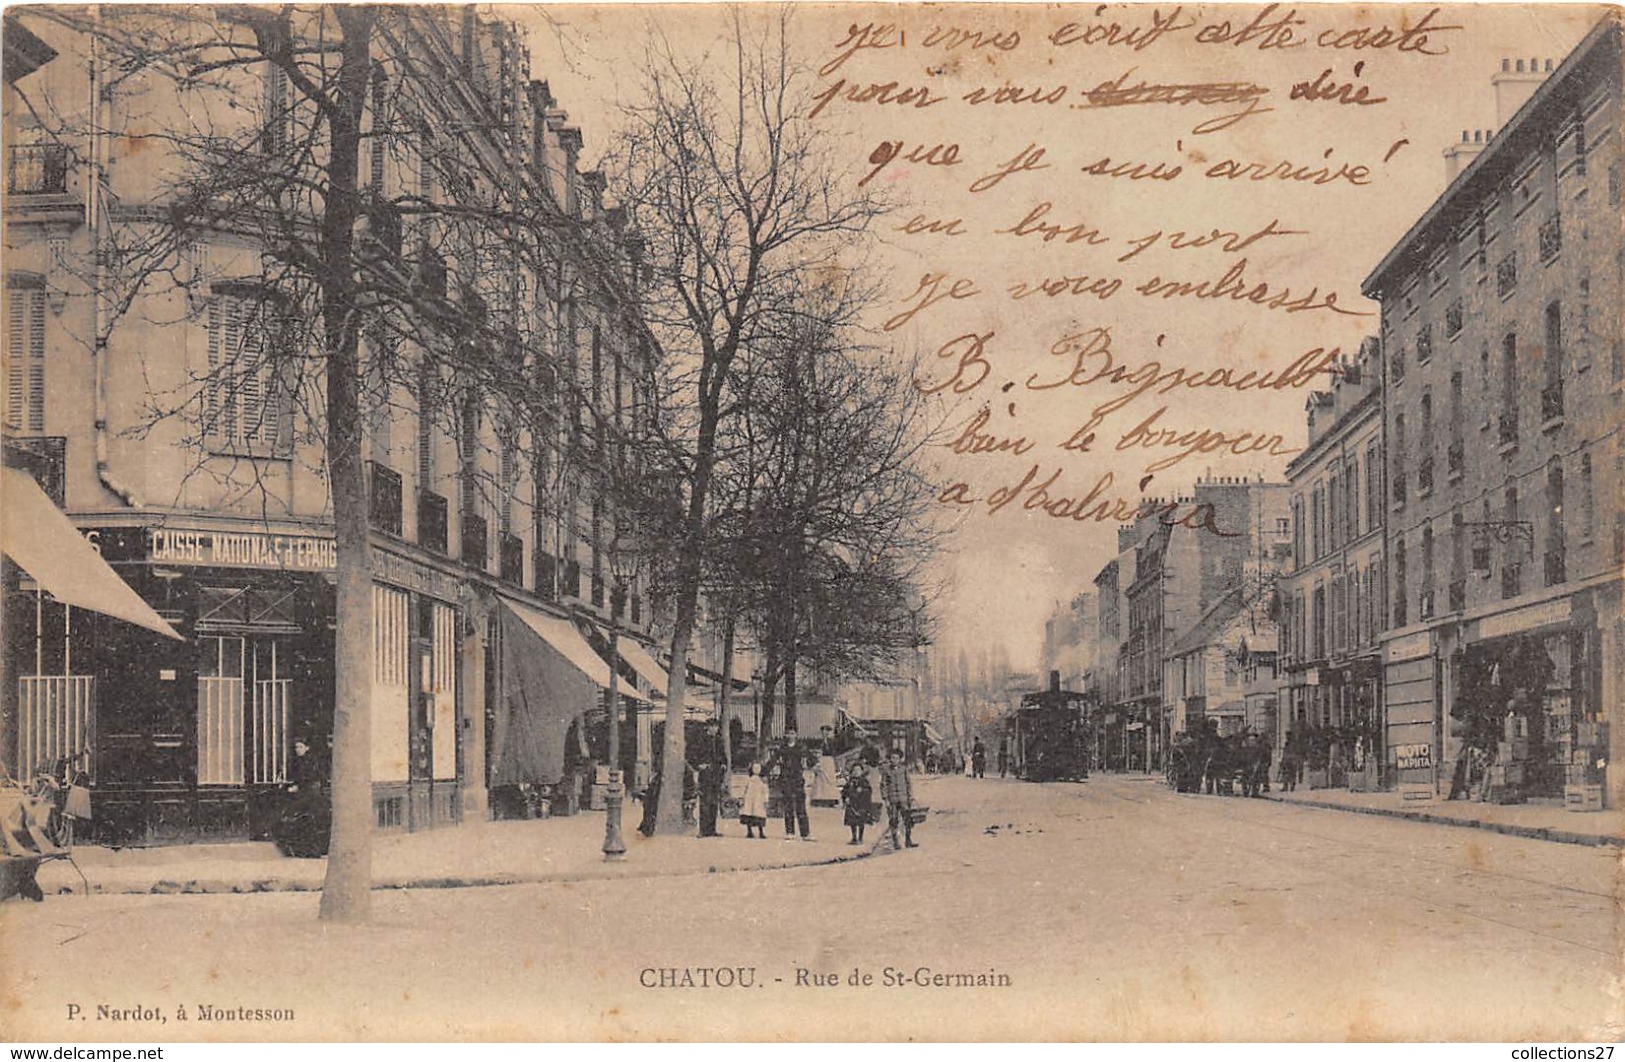 je vous écrit cette carte
pour vous dire
que je suis arrivé
en bon port
je vous embrasse
B. Bignault
bien le bonjour
a Malvina
CAISSE NATIONALE d'EPARG
MOTO
NAPHTA
CHATOU. - Rue de St-Germain
P. Nardot, à Montesson
www.delcampe.net
collections27